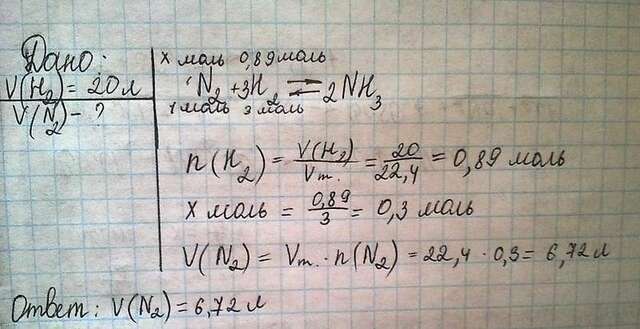 Дано:
V(H₂) = 20 л
V(N₂) - ?
x моль 0,89 моль
N₂ + 3H₂ ⇌ 2NH₃
1 моль 3 моль
n(H₂) = V(H₂)/Vm. = 20/22,4 = 0,89 моль
x моль = 0,89/3 = 0,3 моль
V(N₂) = Vm. · n(N₂) = 22,4 · 0,3 = 6,72 л
Ответ: V(N₂) = 6,72 л